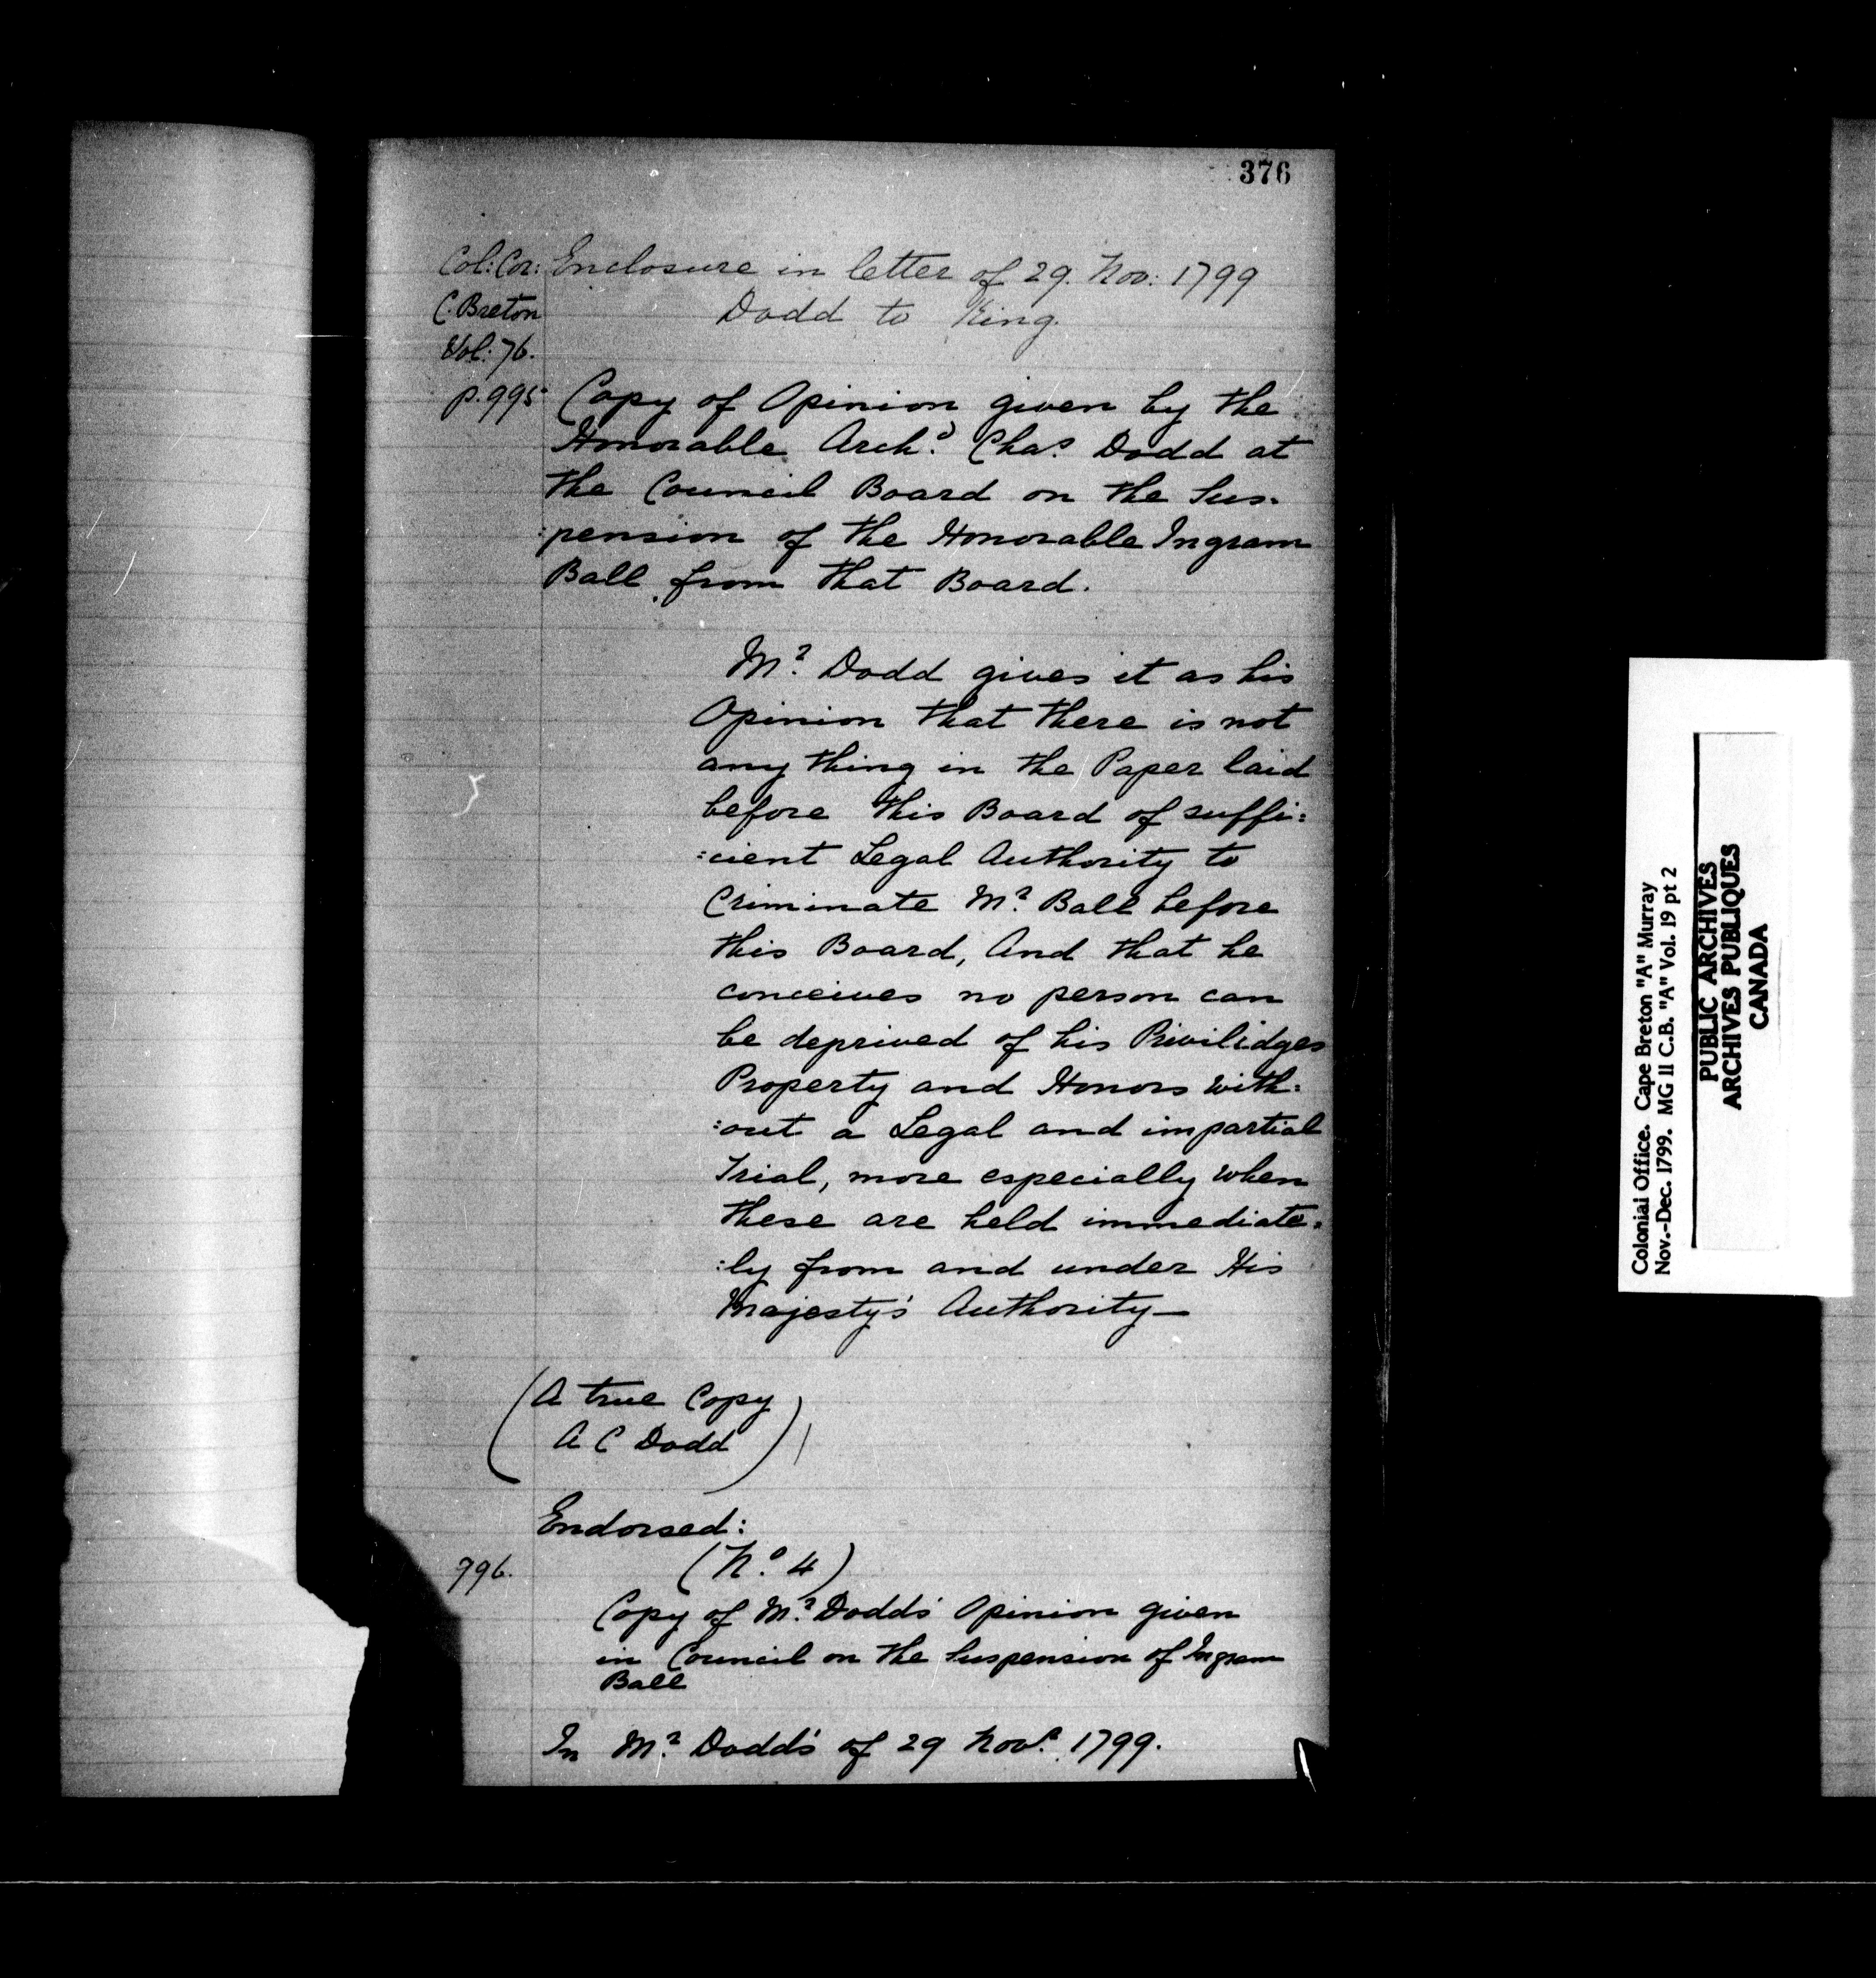 376
Col: Cor: Enclosure in letter of 29. Nov: 1799
C. Breton Dodd to King.
Vol: 76.
p. 995 Copy of Opinion given by the
Honorable Archd. Chas. Dodd at
the Council Board on the Sus-
:pension of the Honorable Ingram
Ball from that Board.
Mr. Dodd gives it as his
Opinion that there is not
any thing in the Paper laid
before this Board of suffi:
:cient Legal Authority to
Criminate Mr. Ball before
this Board, And that he
conceives no person can
be deprived of his Privilidges
Property and Honors with:
:out a Legal and impartial
Trial, more especially when
these are held immediate:
:ly from and under His
Majesty's Authority—
(A true Copy
A C Dodd)
Endorsed:
996. (No. 4)
Copy of Mr. Dodds' Opinion given
in Council on the Suspension of Ingram
Ball
In Mr. Dodd's of 29 Novr. 1799.
Colonial Office. Cape Breton "A" Murray
Nov.-Dec. 1799. MG 11 C.B. "A" Vol. 19 pt 2
PUBLIC ARCHIVES
ARCHIVES PUBLIQUES
CANADA